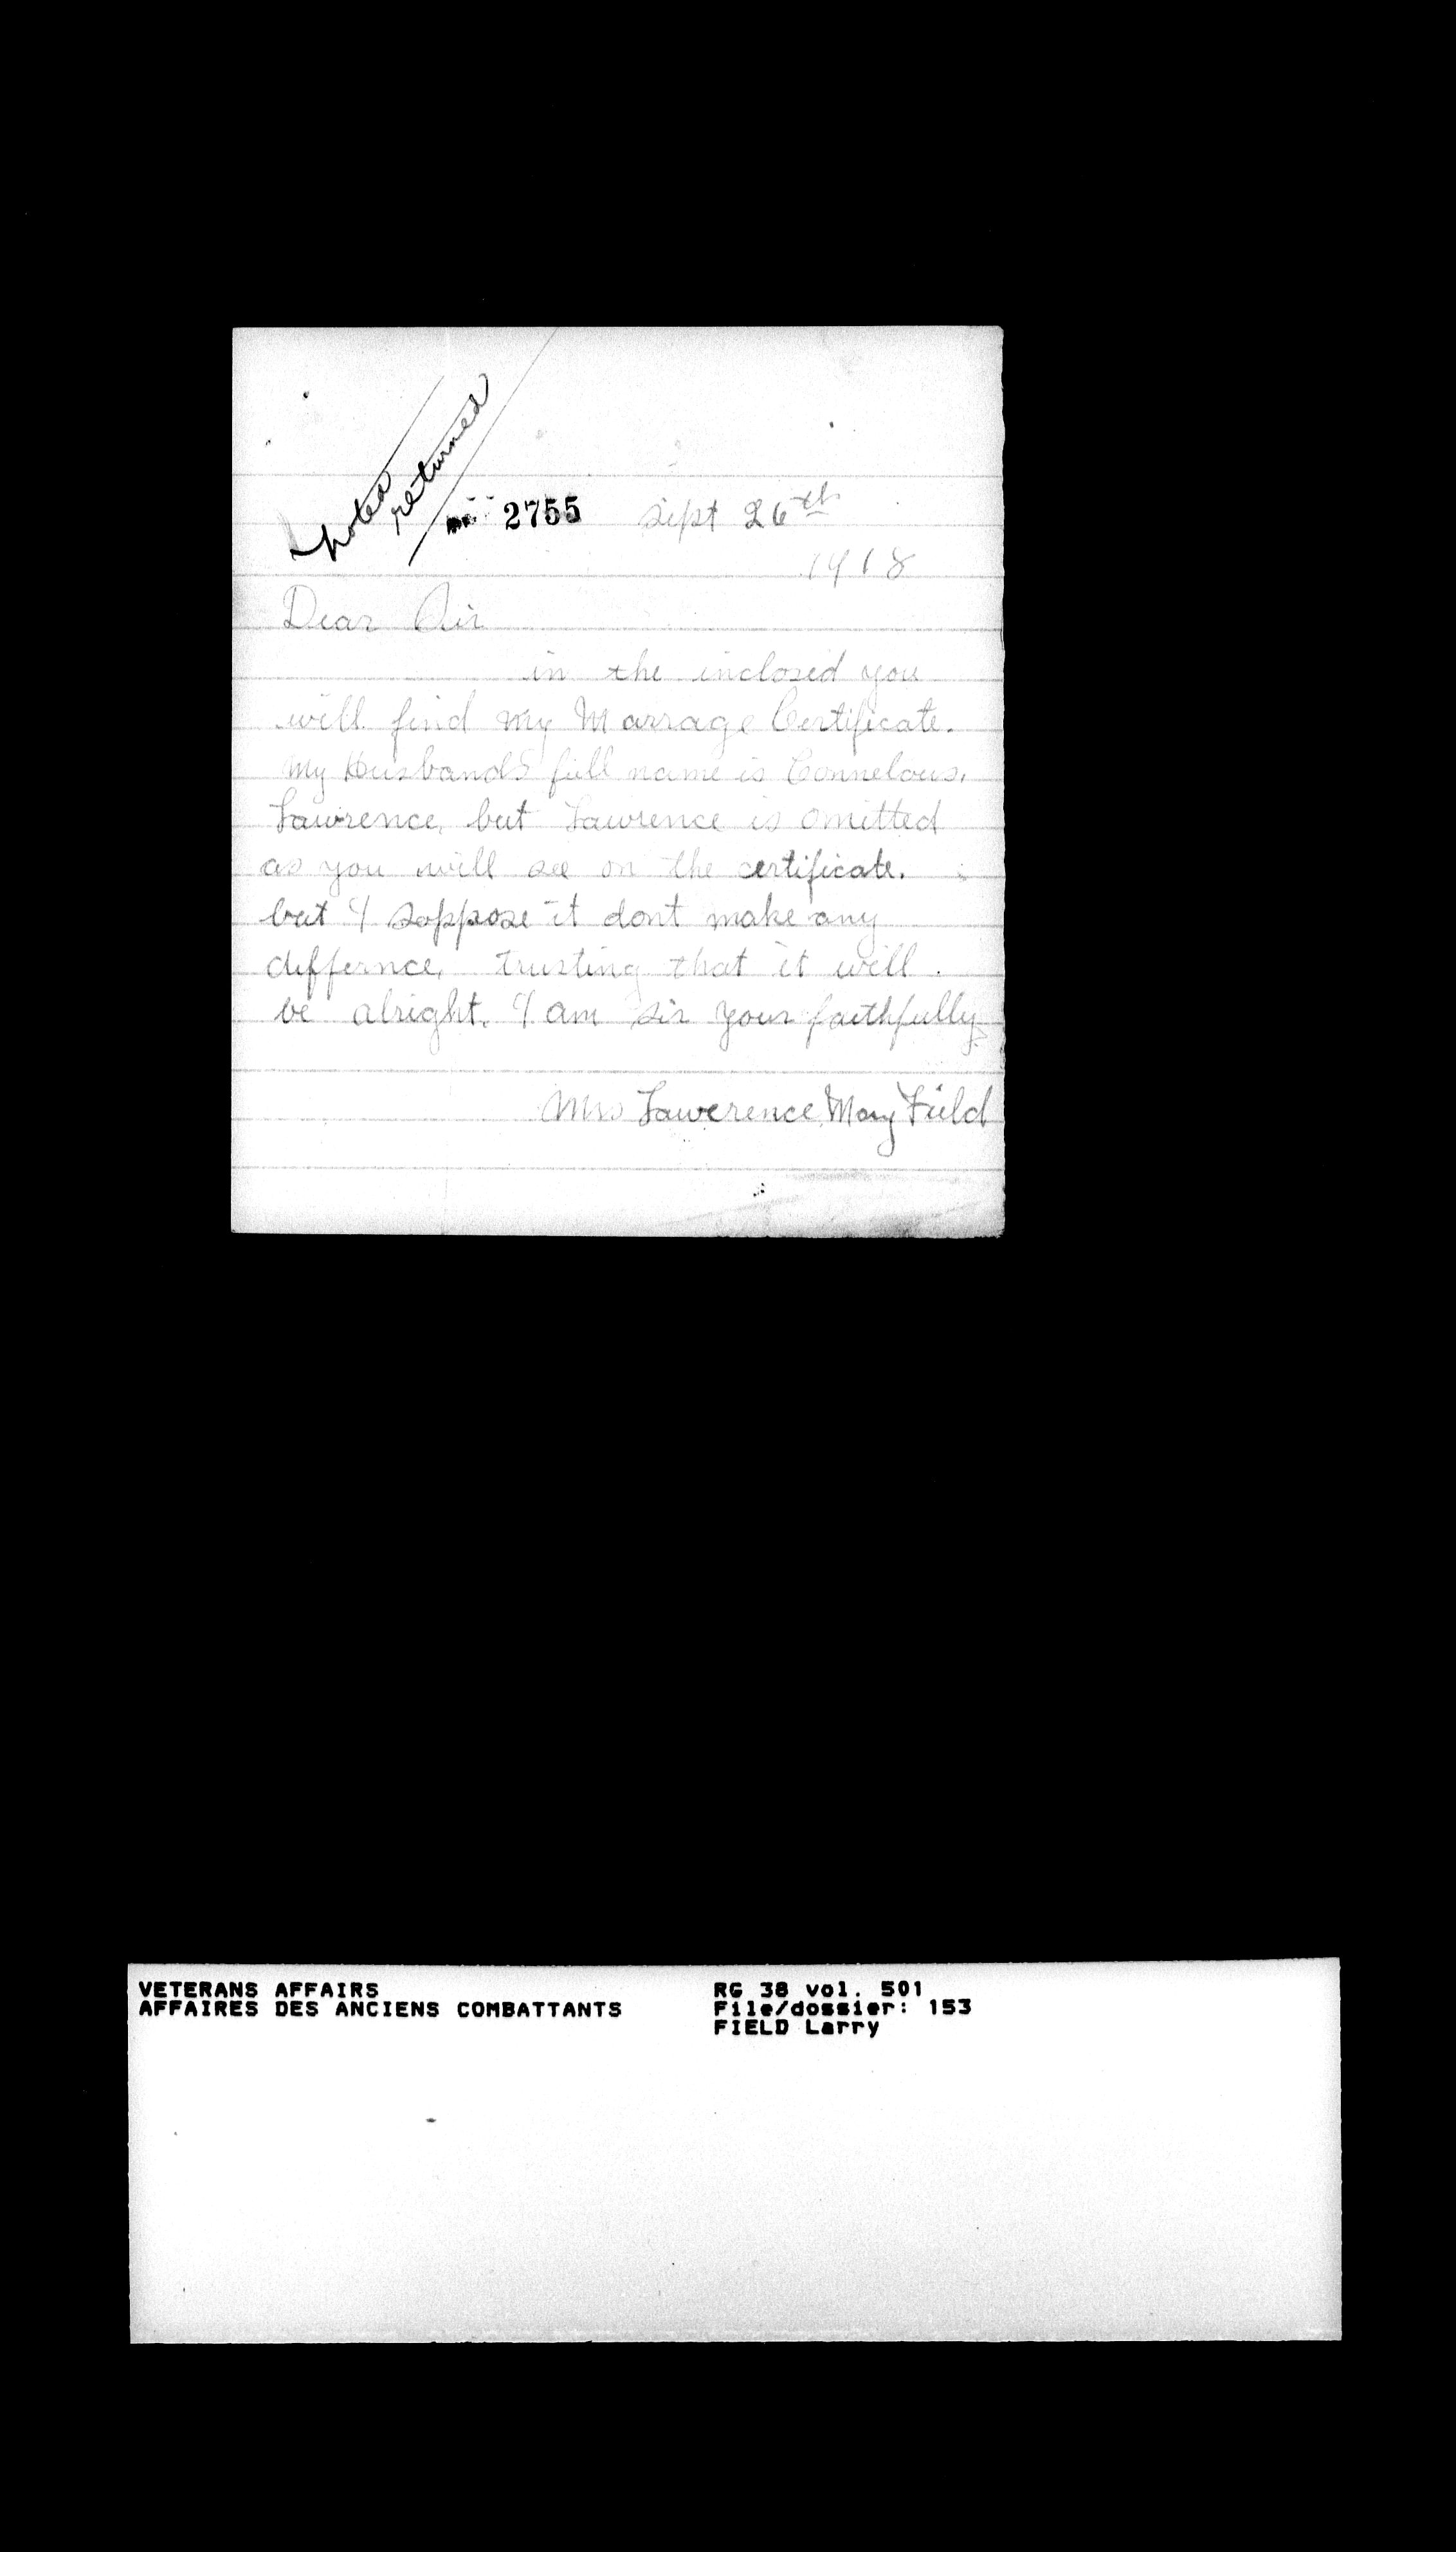 noted
returned
2755 Sept 26th
1918
Dear Sir
in the inclosed you
will find my Marrage Certificate.
My Husbands full name is Connelous,
Lawrence, but Lawrence is omitted
as you will see on the certificate.
but I soppose it dont make any
differnce, trusting that it will
be alright. I am sir your faithfully
Mrs Lawerence Mary Field
VETERANS AFFAIRS RG 38 vol. 501
AFFAIRES DES ANCIENS COMBATTANTS File/dossier: 153
FIELD Larry